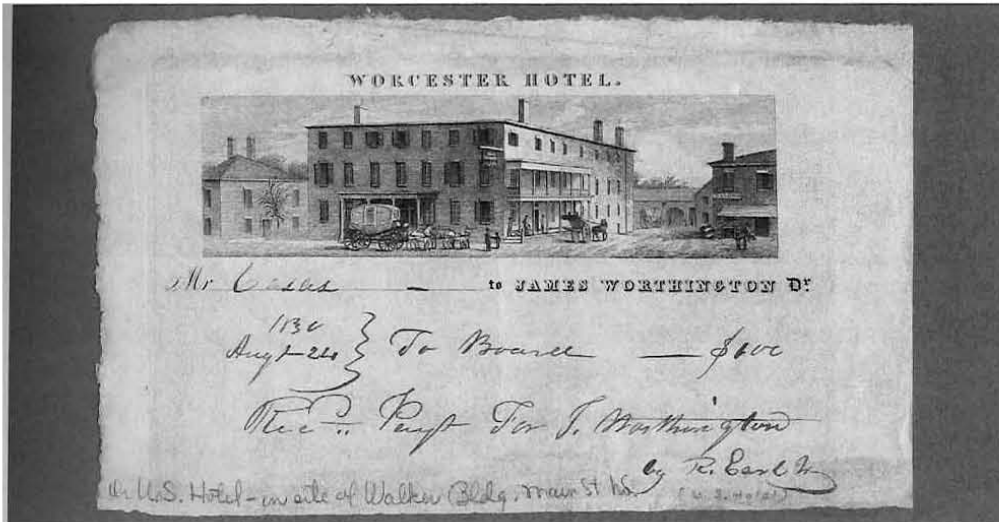 WORCESTER HOTEL.
Mr to JAMES WORTHINGTON Dr.
Augt 24 } To Board — $
Recd. Payt For J. Worthington
by R. Earl
or U.S. Hotel - on site of Walker Bldg. Main St
(U.S. Hotel)